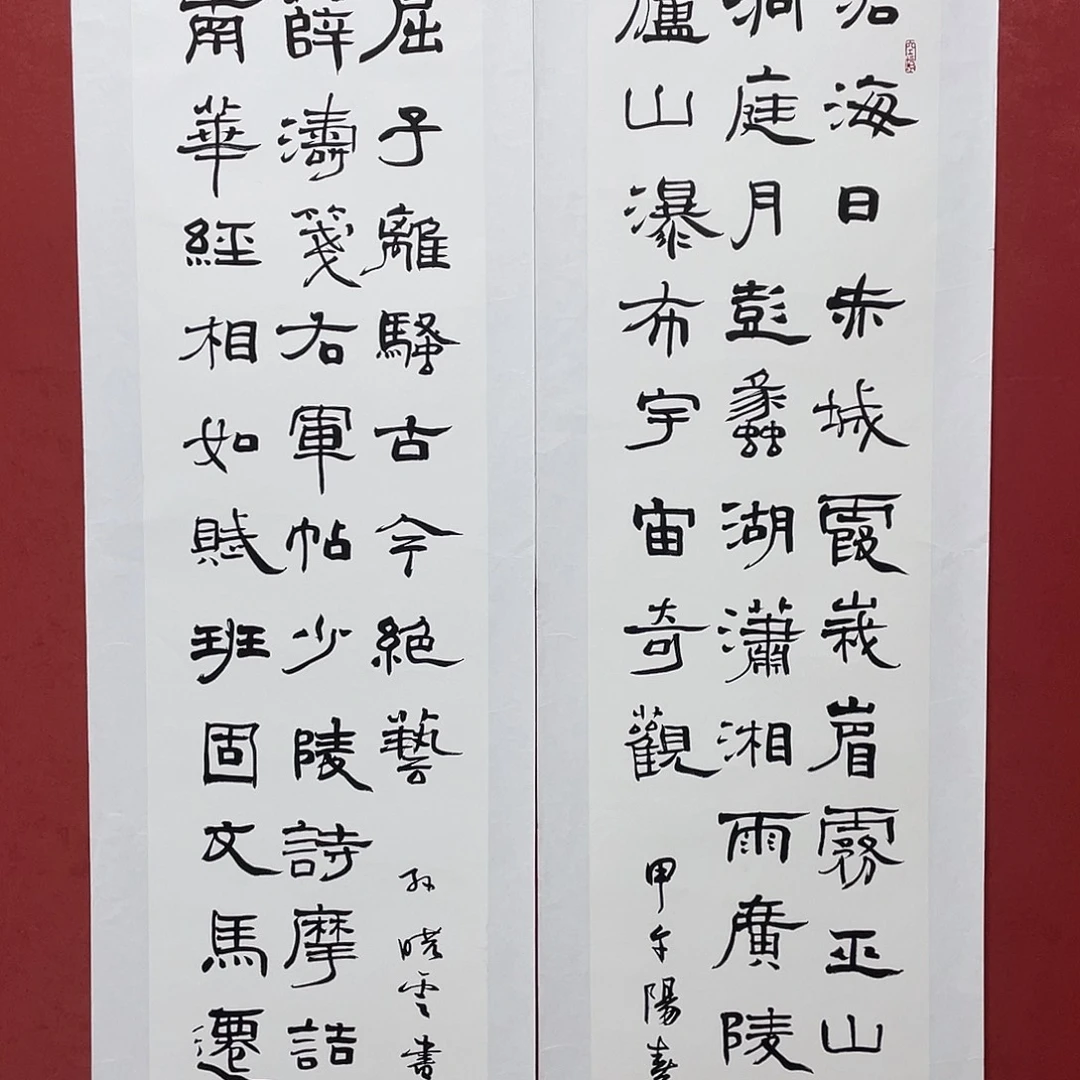 滄海日赤城霞峩嵋霧巫山
洞庭月彭蠡湖瀟湘雨廣陵
廬山瀑布宇宙奇觀
甲午陽春
南華經相如賦班固文馬遷
薛濤箋右軍帖少陵詩摩詰
屈子離騷古今絕藝
孫曉雲書